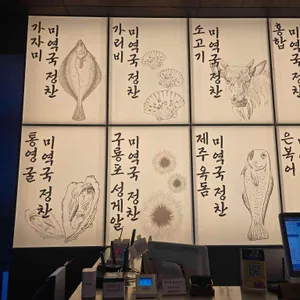 가자미
미역국 정찬
가리비
미역국 정찬
소고기
미역국 정찬
홍합
통영 굴
미역국 정찬
구룡포 성게알
미역국 정찬
제주 옥돔
미역국 정찬
은복어